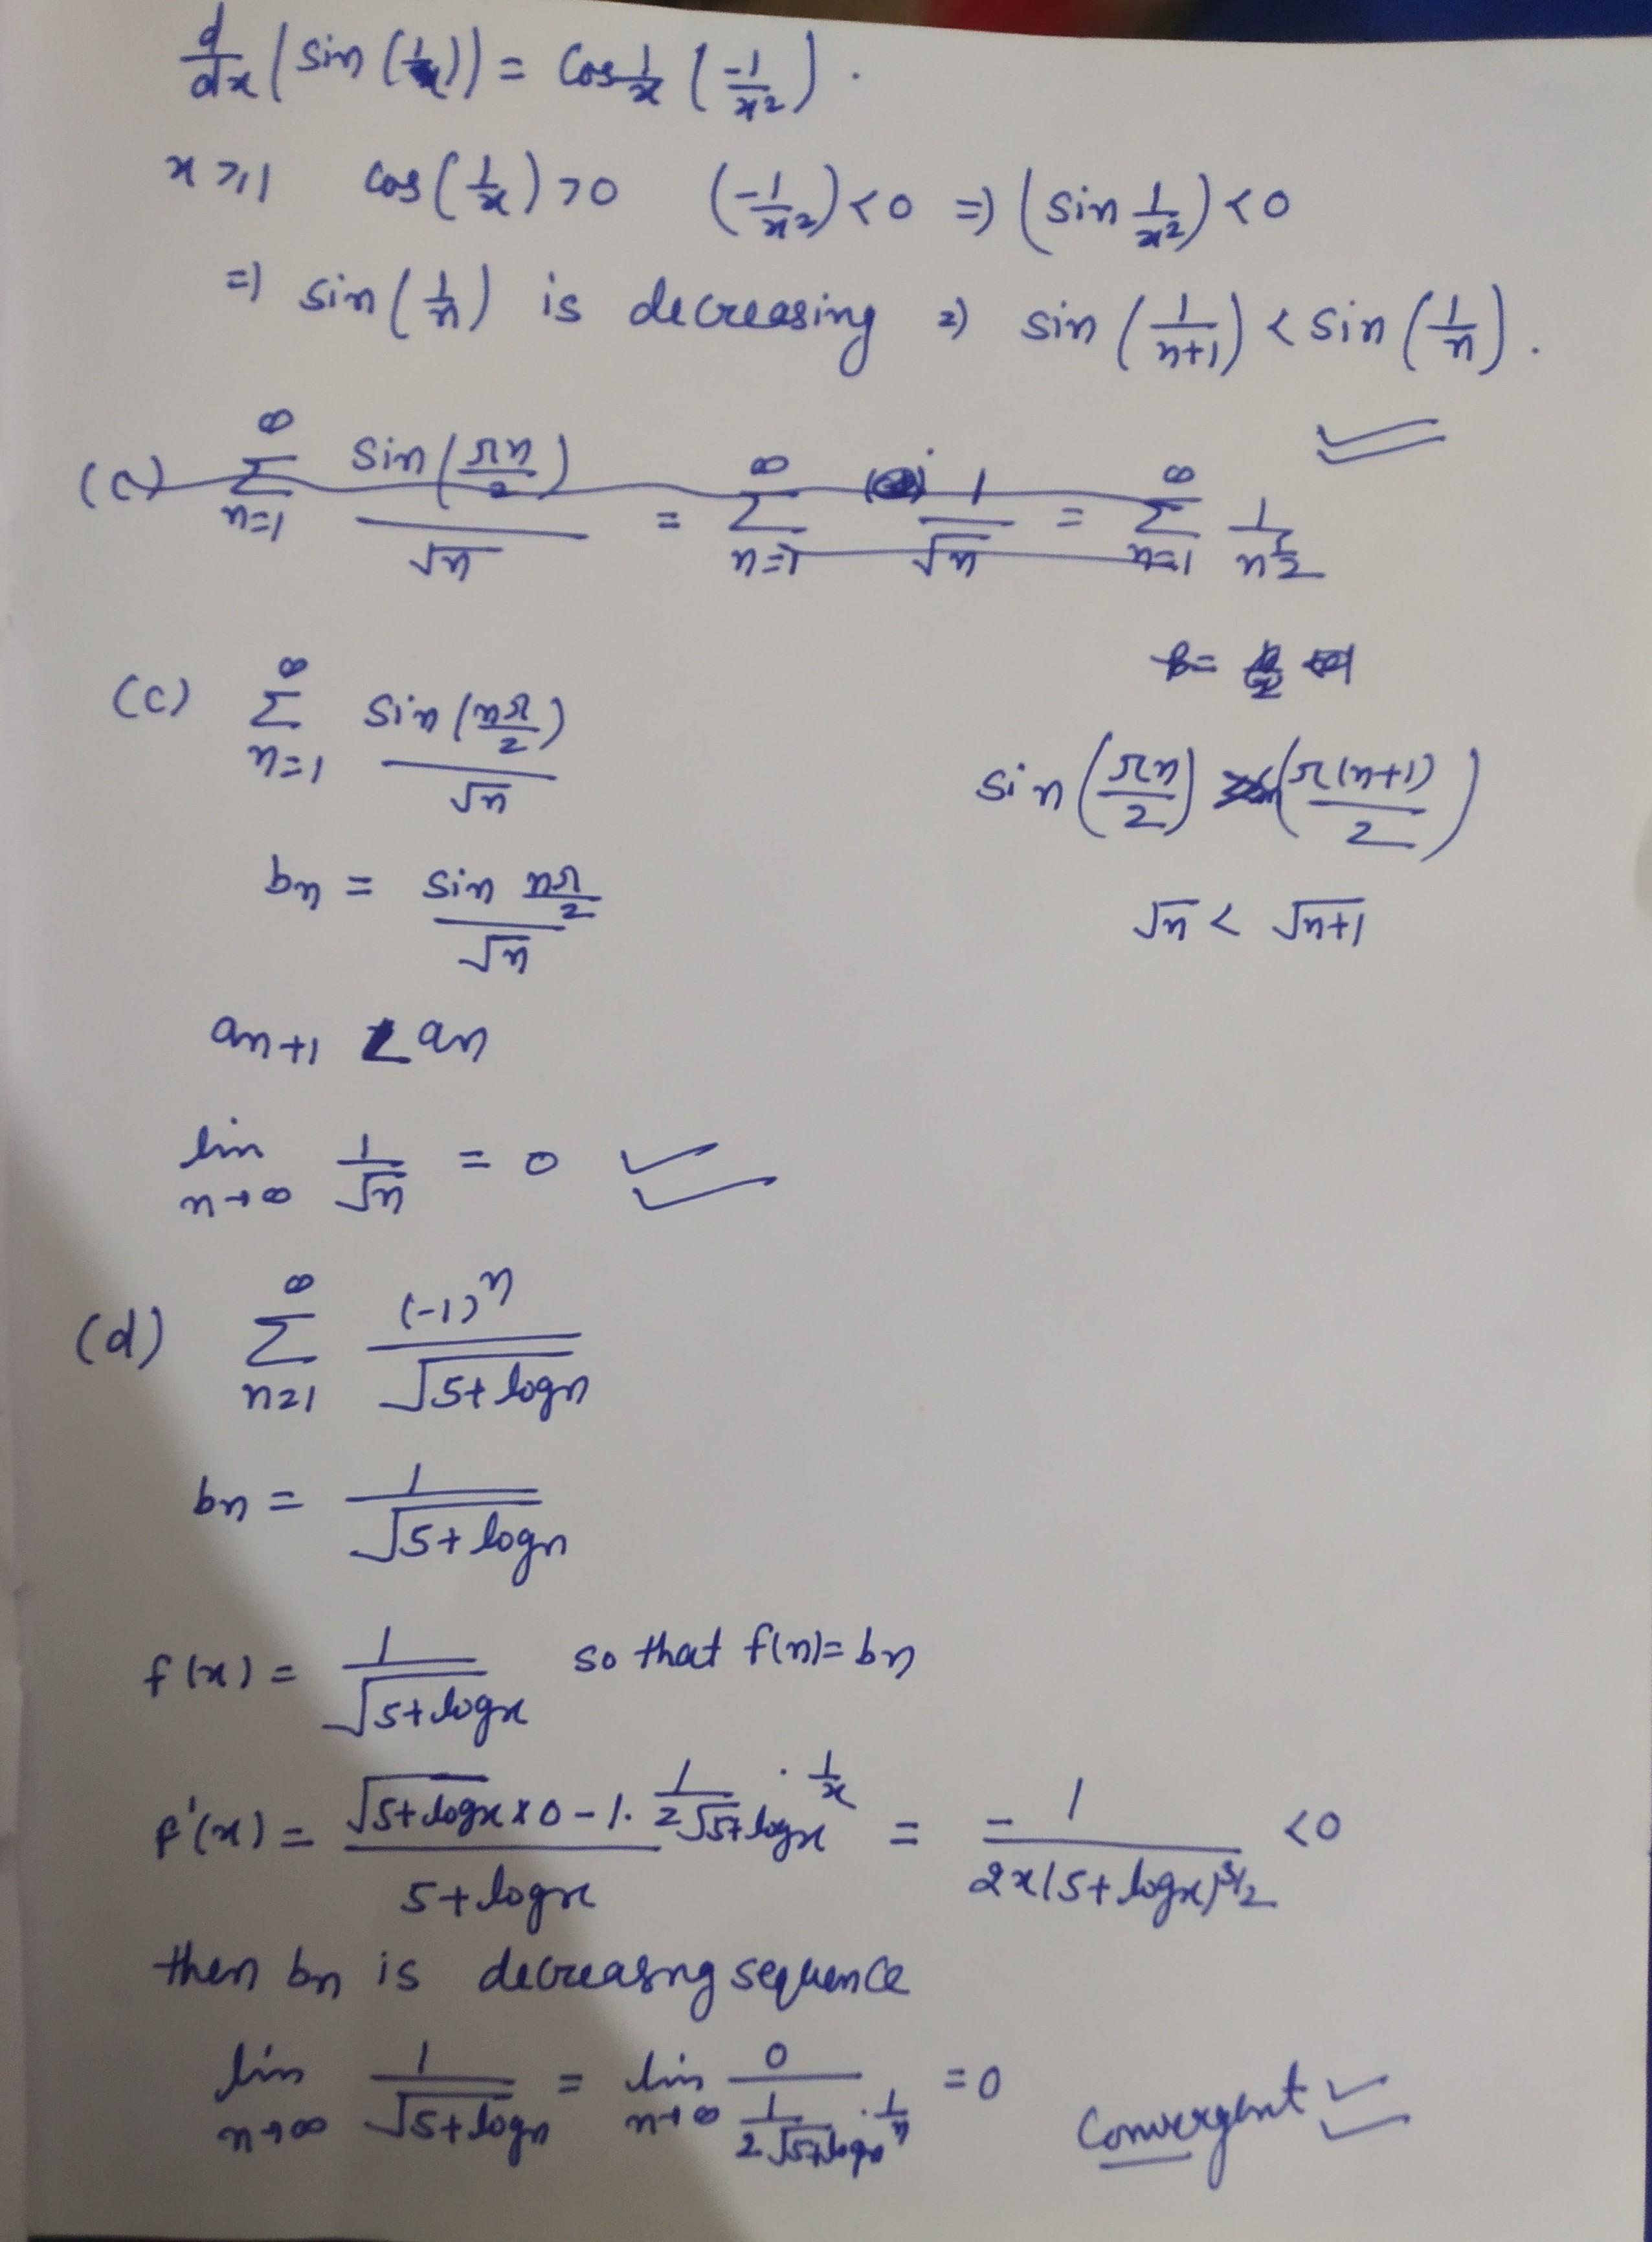 d/dx (sin(1/x)) = cos 1/x (-1/x²).
x ≥ 1 cos(1/x) > 0 (-1/x²) < 0 ⇒ (sin 1/x²) < 0
⇒ sin(1/n) is decreasing ⇒ sin(1/(n+1)) < sin(1/n).
(c) ∞ Σ n=1 sin(πn/2)/√n = ∞ Σ n=1 1/√n = ∞ Σ n=1 1/n^½
(c) ∞ Σ n=1 sin(nπ/2)/√n
sin(πn/2) (π(n+1)/2)
bn = sin nπ/2 / √n
√n < √n+1
an+1 < an
lim n→∞ 1/√n = 0
(d) ∞ Σ n=1 (-1)ⁿ/√5+logn
bn = 1/√5+logn
f(x) = 1/√5+logx so that f(n)=bn
f'(x) = (√5+logx × 0 - 1. 1/2√5+logx . 1/x)/(5+logx) = -1/2x(5+logx)^3/2 < 0
then bn is decreasng sequence
lim n→∞ 1/√5+logn = lim n→∞ 0/(1/2√5+logn . 1/n) = 0 Convergent